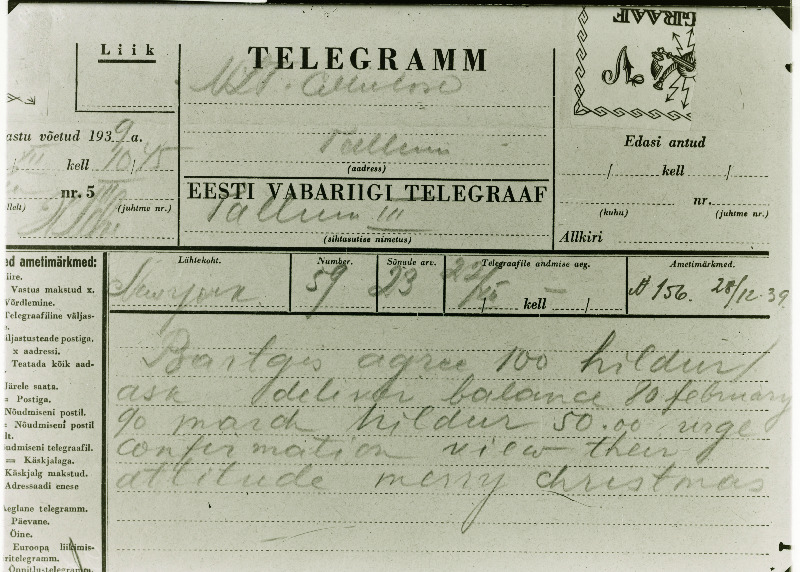 GRAAF
Liik
TELEGRAMM
NLT. Cellulose
astu võetud 1939 a.
Tallinn
(aadress)
Edasi antud
kell 10/45
/ kell /
nr. 5
EESTI VABARIIGI TELEGRAAF
nr.
Tallinn III
(juhtme nr.)
(kuhu) (juhtme nr.)
(sihtasutise nimetus)
Allkiri
ed ametimärkmed:
Lähtekoht. Number. Sõnade arv. Telegraafile andmise aeg. Ametimärkmed.
New York 59 23 22/XII kell / № 156. 28/12.39.
Vastus makstud x.
Võrdlemine.
Telegraafiline väljas-
äljastustende postiga.
x aadressi.
Teatada kõik aad-
Järele saata.
= Postiga.
Nõudmiseni postil.
= Nõudmiseni postil
lt.
udmiseni telegraafil.
= Käskjalaga.
Käskjalg makstud.
Adressaadi enese
Aeglane telegramm.
Päevane.
Öine.
Euroopa liiklmis-
ritelegramm.
Õnnitlu-telegramm.
Bartgis agree 100 hildur/
ask deliver balance 80 february
90 march hildur 50.00 urge
confirmation view their
attitude merry christmas